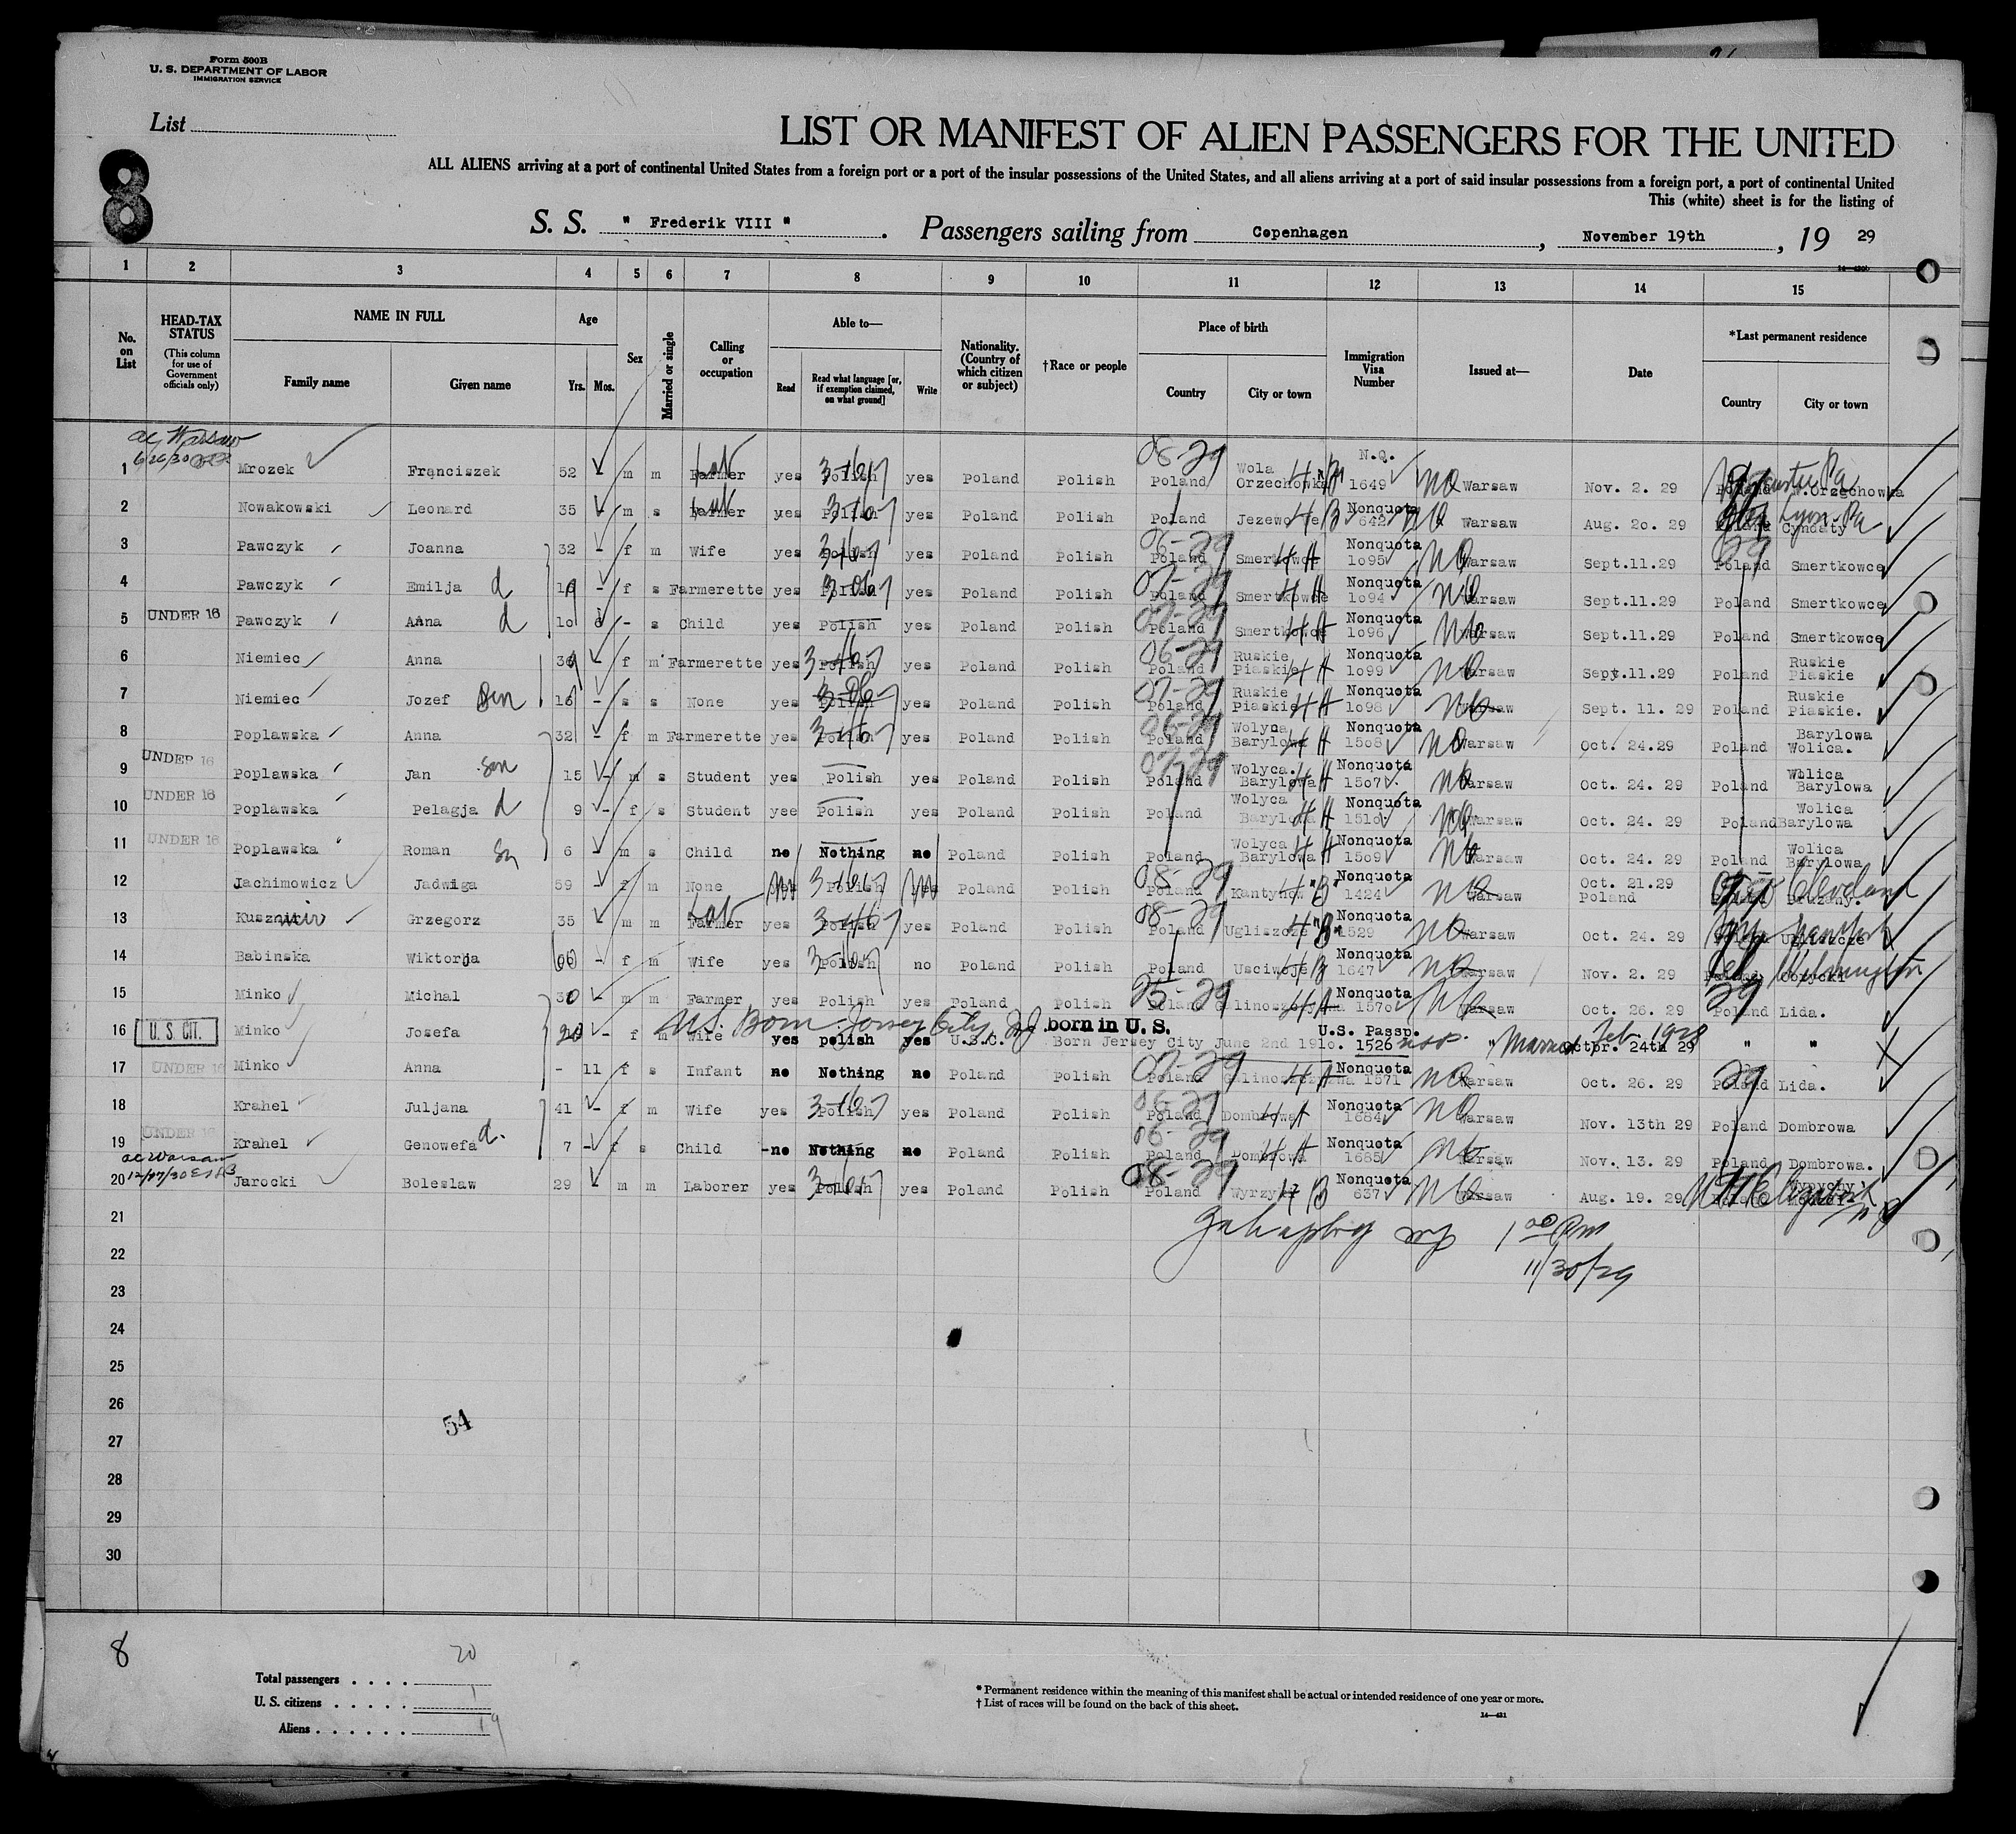 Form 500B
U. S. DEPARTMENT OF LABOR
IMMIGRATION SERVICE
List
8
LIST OR MANIFEST OF ALIEN PASSENGERS FOR THE UNITED
ALL ALIENS arriving at a port of continental United States from a foreign port or a port of the insular possessions of the United States, and all aliens arriving at a port of said insular possessions from a foreign port, a port of continental United
This (white) sheet is for the listing of
S. S. " Frederik VIII " . Passengers sailing from Copenhagen , November 19th , 19 29
1 2 3 4 5 6 7 8 9 10 11 12 13 14 15
No. on List
HEAD-TAX STATUS (This column for use of Government officials only)
NAME IN FULL Family name Given name
Age Yrs. Mos.
Sex
Married or single
Calling or occupation
Able to— Read Read what language [or, if exemption claimed, on what ground] Write
Nationality. (Country of which citizen or subject)
†Race or people
Place of birth Country City or town
Immigration Visa Number
Issued at—
Date
*Last permanent residence Country City or town
1 Mrozek Franciszek 52 m m Farmer yes Polish yes Poland Polish Poland Wola Orzechowka N.Q. 1649 Warsaw Nov. 2. 29 Poland W.Orzechowka
2 Nowakowski Leonard 35 m s Farmer yes Polish yes Poland Polish Poland Jezewo Nonquota 642 Warsaw Aug. 20. 29 Poland Cyndaty
3 Pawczyk Joanna 32 - f m Wife yes Polish yes Poland Polish Poland Smertkowce Nonquota 1095 Warsaw Sept.11.29 Poland Smertkowce
4 Pawczyk Emilja d - f s Farmerette yes Polish yes Poland Polish Poland Smertkowce Nonquota 1094 Warsaw Sept.11.29 Poland Smertkowce
5 UNDER 16 Pawczyk Anna d 10 - s Child yes Polish yes Poland Polish Poland Smertkowce Nonquota 1096 Warsaw Sept.11.29 Poland Smertkowce
6 Niemiec Anna - f m Farmerette yes Polish yes Poland Polish Poland Ruskie Piaskie Nonquota 1099 Warsaw Sept.11.29 Poland Ruskie Piaskie
7 Niemiec Jozef Son 16 - s s None yes Polish yes Poland Polish Poland Ruskie Piaskie Nonquota 1098 Warsaw Sept. 11. 29 Poland Ruskie Piaskie.
8 Poplawska Anna 32 - f m Farmerette yes Polish yes Poland Polish Poland Wolyca Barylowa Nonquota 1508 Warsaw Oct. 24.29 Poland Barylowa Wolica.
9 UNDER 16 Poplawska Jan son 15 - m s Student yes Polish yes Poland Polish Poland Wolyca. Barylowa Nonquota 1507 Warsaw Oct. 24. 29 Poland Wolica Barylowa
10 UNDER 16 Poplawska Pelagja d 9 - f s Student yee Polish yes Poland Polish Poland Wolyca Barylowa Nonquota 1510 Warsaw Oct. 24. 29 Poland Wolica Barylowa
11 UNDER 16 Poplawska Roman Sn 6 - m s Child no Nothing no Poland Polish Poland Wolyca Barylowa Nonquota 1509 Warsaw Oct. 24. 29 Poland Wolica Barylowa
12 Jachimowicz Jadwiga 59 - f m None Polish Poland Polish Poland Kantyhow Nonquota 1424 Warsaw Oct. 21.29 Poland Ohio Cleveland Pruzany.
13 Kusznir Grzegorz 35 m m Farmer yes Polish yes Poland Polish Poland Ugliszcze Nonquota 1529 Warsaw Oct. 24. 29 Poland Ugliszcze
14 Babinska Wiktorja 60 - f m Wife yes Polish no Poland Polish Poland Usciwoje Nonquota 1647 Warsaw Nov. 2. 29 Poland Del Wilmington
15 Minko Michal 30 - m m Farmer yes Polish yes Poland Polish Poland Nonquota 1570 Warsaw Oct. 26. 29 Poland Lida.
16 U. S. CIT. Minko Josefa 20 - f m Wife yes polish yes U.S.C. U.S. Born Jersey City NJ born in U. S. Born Jersey City June 2nd 1910. U.S. Passp. 1526 " Married Feb. 1928 octpr. 24th 29 " "
17 UNDER 16 Minko Anna - 11 f s Infant no Nothing no Poland Polish Poland Nonquota 1571 Warsaw Oct. 26. 29 Poland Lida.
18 Krahel Juljana 41 - f m Wife yes Polish yes Poland Polish Poland Dombrowa Nonquota 1684 Warsaw Nov. 13th 29 Poland Dombrowa
19 UNDER 16 Krahel Genowefa d. 7 - f s Child -no Nothing no Poland Polish Poland Dombrowa Nonquota 1685 Warsaw Nov. 13. 29 Poland Dombrowa.
20 Jarocki Boleslaw 29 m m Laborer yes Polish yes Poland Polish Poland Wyrzyki Nonquota 637 Warsaw Aug. 19. 29 Poland
21
1 00 Pm
22
11/30/29
23
24
25
26
54
27
28
29
30
8
Total passengers . . . . 20
U. S. citizens . . . . . 1
Aliens . . . . . . 19
* Permanent residence within the meaning of this manifest shall be actual or intended residence of one year or more.
† List of races will be found on the back of this sheet.
14—431